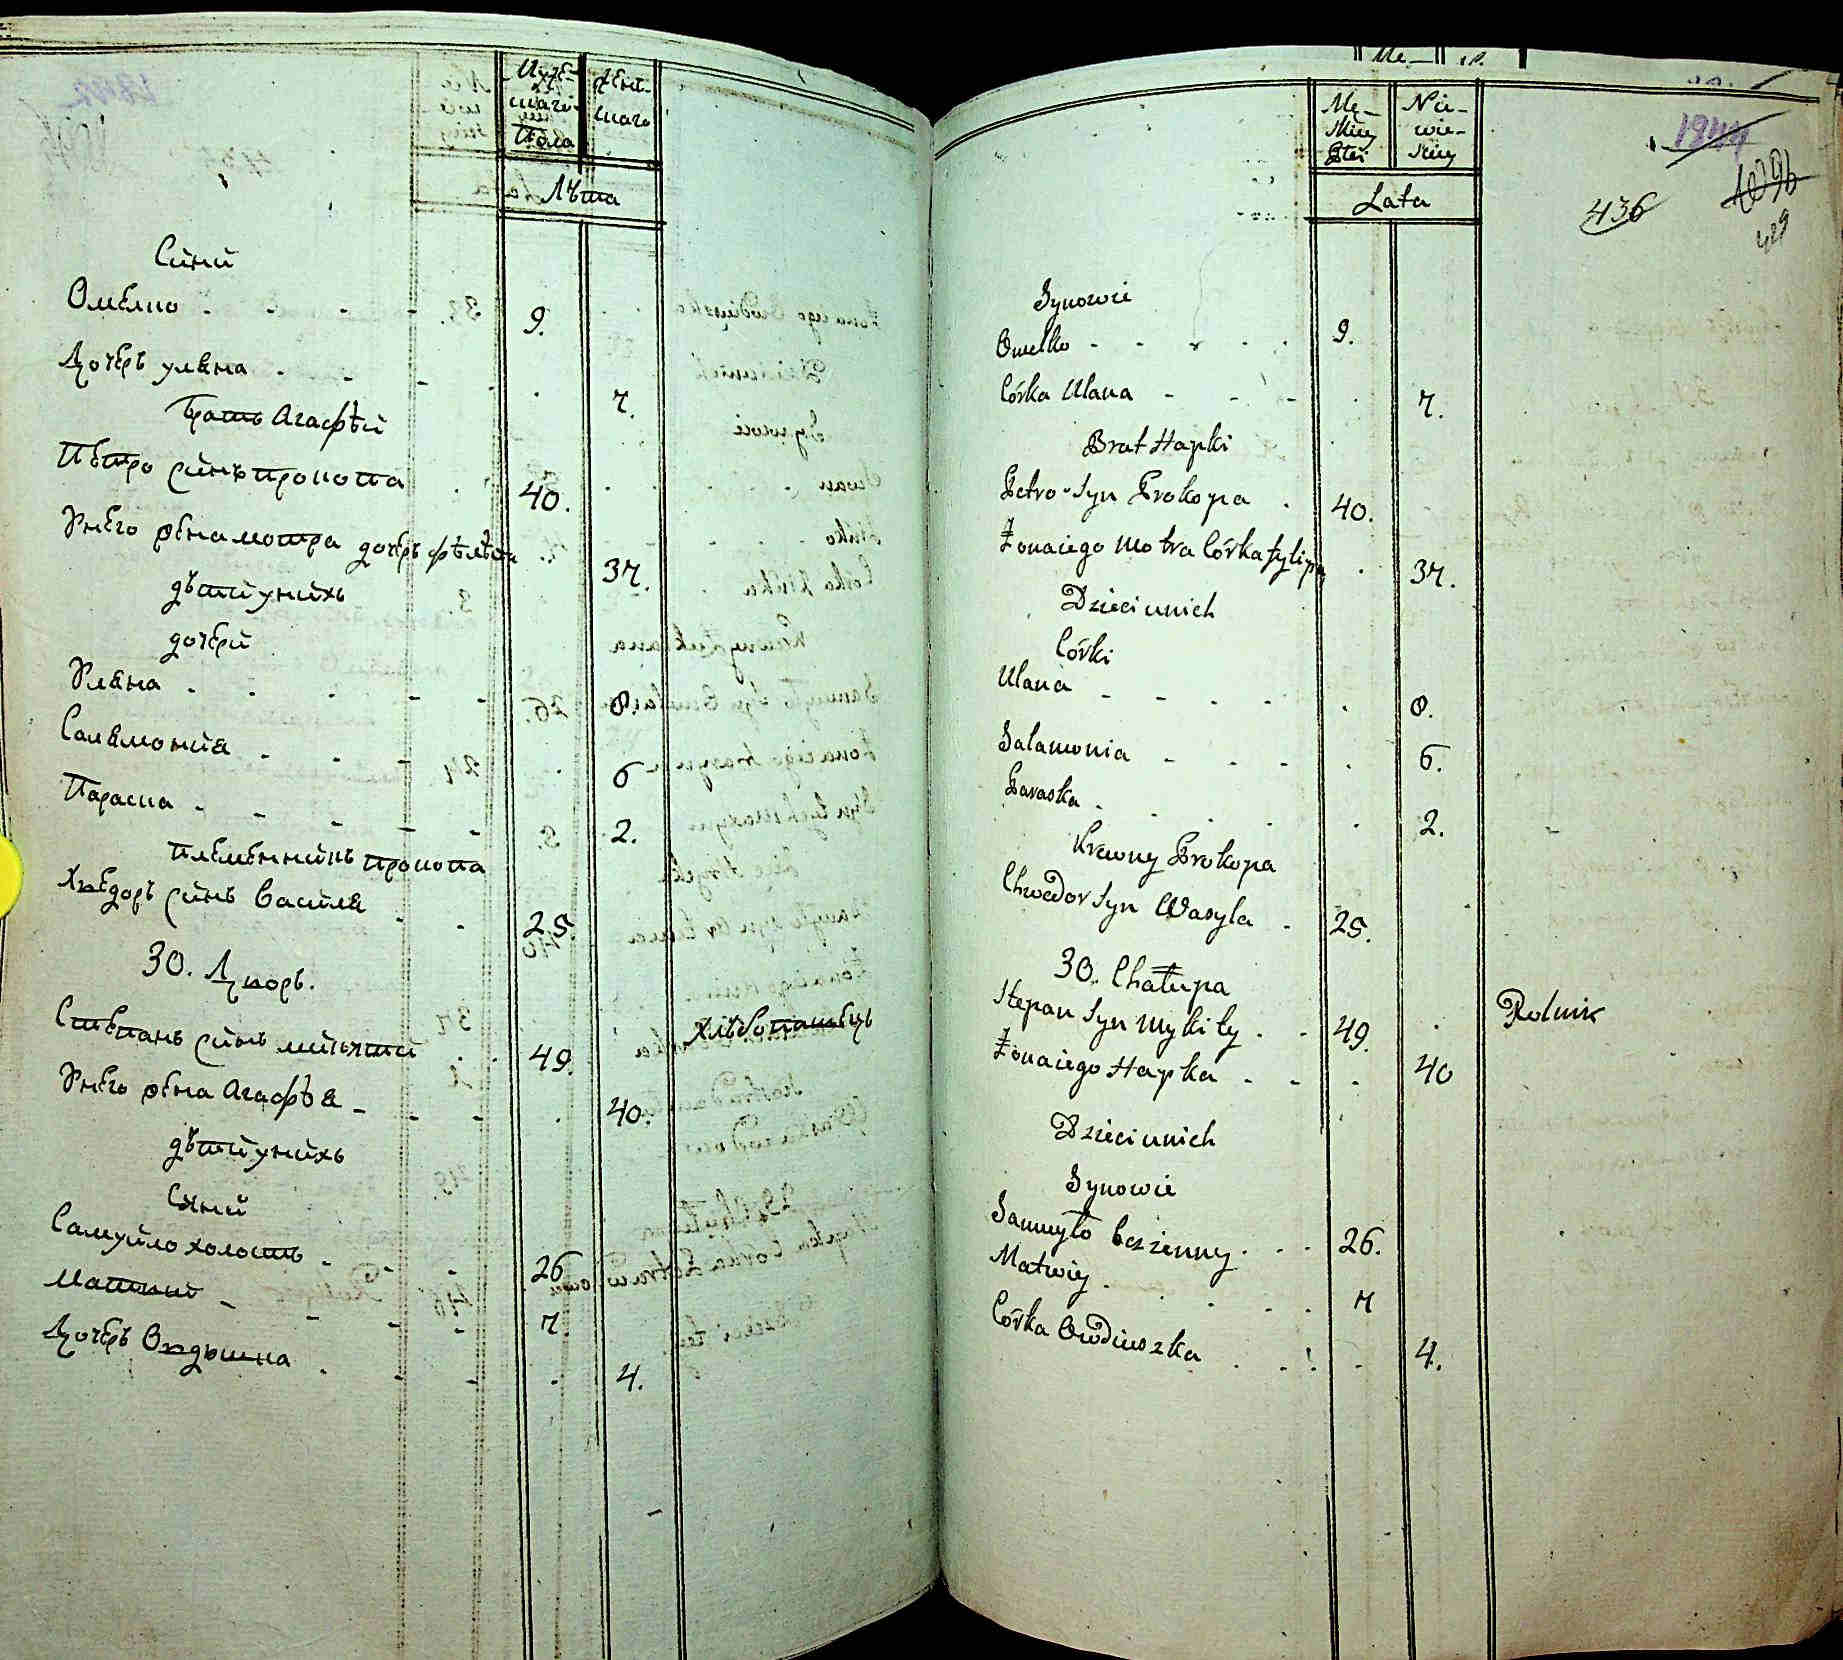 Мужескаго Пола
Женскаго
Лѣта
Сини
Омелко 9.
Дочерь уляна 7.
Братъ Агафѣи
Пѣтро синъ прокопа 40.
Унего жена мотра дочерь 37.
дѣти унихъ
дочери
Уляна 8.
Саламонія 6
Параска 2.
племенникъ прокопа
Хведоръ синъ василя 25.
30. Дворъ.
Степанъ синъ микити 49. Хлѣбопашець
Унего жена Агафѣя 40.
дѣти унихъ
Сини
Самуйло холостъ 26
Матвій 7.
Дочерь Овдюшка 4.
Mę-
skiey
Płci
Nie-
wie-
skiey
Lata
1844
436
429
Synowie
Omelko 9.
Córka Ulana 7.
Brat Hapki
Petro Syn Prokopa 40.
Żona iego Motra Córka fylipa 37.
Dzieci unich
Córki
Ulana 8.
Salamonia 6.
Paraska 2.
Krewny Prokopa
Chwedor Syn Wasyla 25.
30. Chałupa
Stepan Syn Mykity 49. Rolnik
Żona iego Hapka 40
Dzieci unich
Synowie
Samuyło bezżenny 26.
Matwiy 7
Córka Owdiuszka 4.